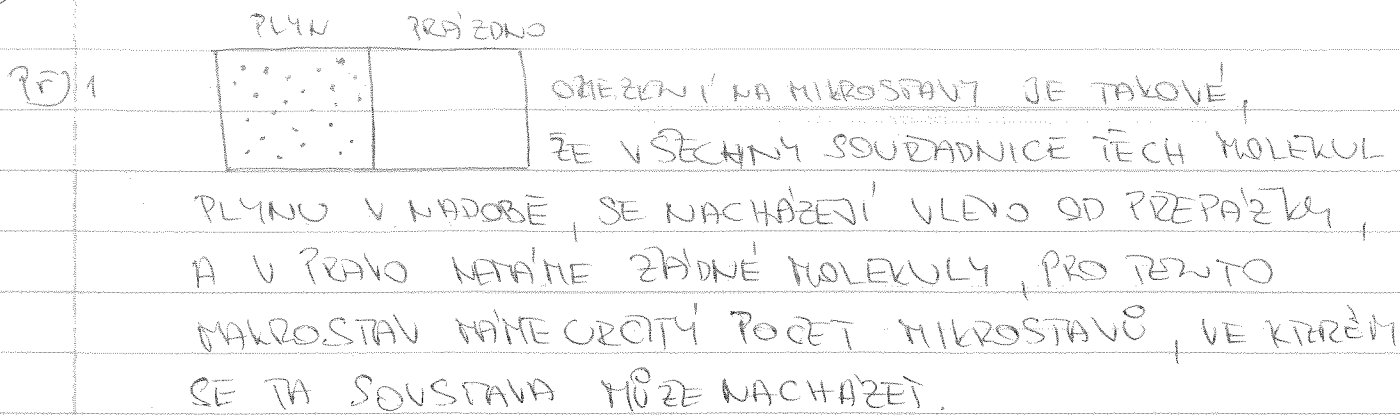 PLYN PRÁZDNO
Př) 1
OMEZENÍ NA MIKROSTAVY JE TAKOVÉ,
ŽE VŠECHNY SOUŘADNICE TĚCH MOLEKUL
PLYNU V NÁDOBĚ, SE NACHÁZEJÍ VLEVO OD PŘEPÁŽKY,
A V PRAVO NEMÁME ŽÁDNÉ MOLEKULY, PRO TENTO
MAKROSTAV MÁME URČITÝ POČET MIKROSTAVŮ, VE KTERÉM
SE TA SOUSTAVA MŮŽE NACHÁZET.